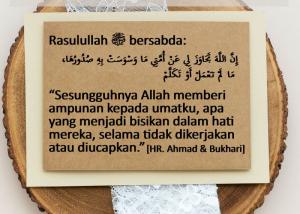 Rasulullah ﷺ bersabda:
إِنَّ اللَّهَ تَجَاوَزَ لِي عَنْ أُمَّتِي مَا وَسْوَسَتْ بِهِ صُدُورُهَا،
مَا لَمْ تَعْمَلْ أَوْ تَكَلَّمْ
“Sesungguhnya Allah memberi
ampunan kepada umatku, apa
yang menjadi bisikan dalam hati
mereka, selama tidak dikerjakan
atau diucapkan.” [HR. Ahmad & Bukhari]